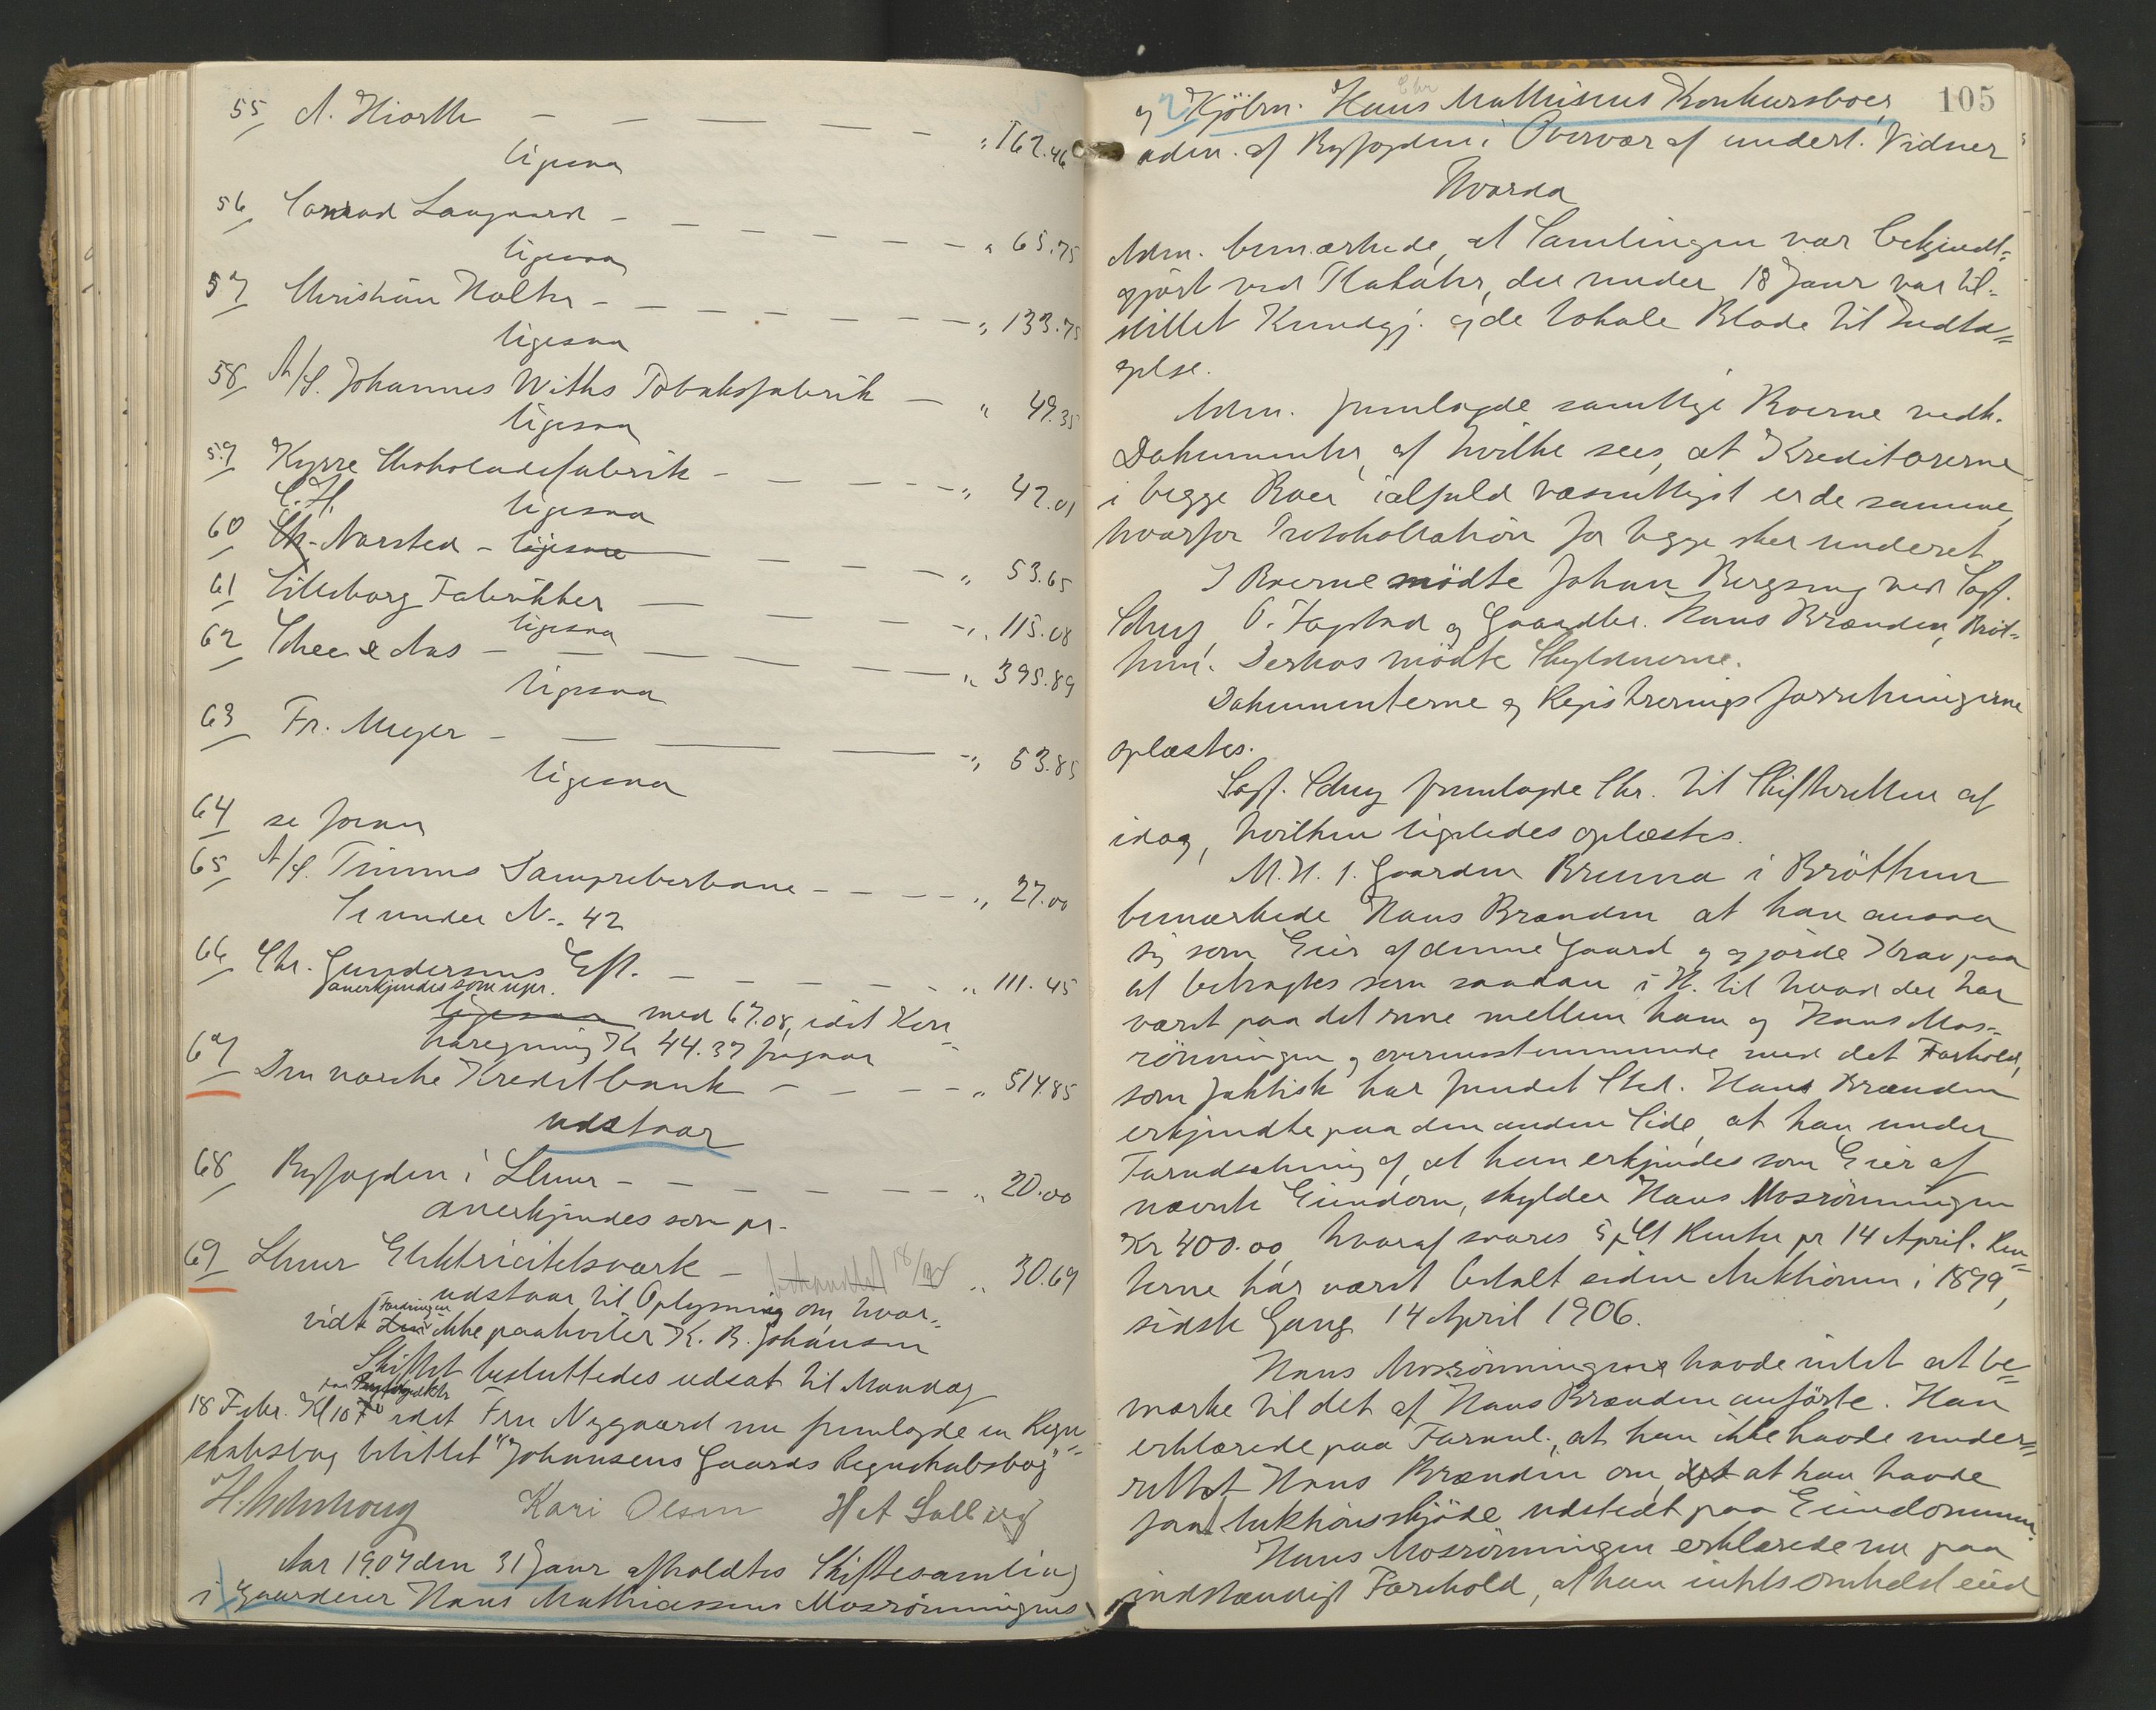 55 A. Hiorth — — — — - " 162.46
ligesaa
56 Conrad Langaard - — — — — — " 65.75
ligesaa
57 Christian Holter - — — — — — " 133.75
ligesaa
58 A/S. Johannes Withs Tobaksfabrik — " 49.35
ligesaa
59 Kyrre Chokoladefabrik - — — - - " 42.01
C. H. ligesaa
60 Ch. Narsted - ligesaa — — — - " 53.65
61 Lilleborg Fabrikker — — — - " 115.08
ligesaa
62 Schee & Aas - — — — — — " 395.89
ligesaa
63 Fr. Meyer - — — — - " 53.85
ligesaa
64 se foran
65 A/S. Timms Damp - - — — - " 27.00
Se under N. 42
66 Chr. Gundersens Eft. — — - - - " 111.45
anerkjendes som upr.
ligesaa med 67.08, idet Kon-
traregning Kr 44.37 fragaar
67 Den norske Kreditbank - — - - " 514.85
udstaar
68 Byfogden i Lhmr - — — — — — " 20.00
anerkjendes som pr.
69 Lhmr Elektricitetsværk - 18/2 " 30.69
udstaar til Oplysning om hvor-
Fordringen
vidt den ikke paahviler K. B. Johansen
Skiftet besluttedes udsat til Mandag
paa Byfogdktr
18 Febr. Kl 10 F idet Fru Nygaard nu fremlagde en Regn-
skabsbog betitlet "Johansens Gaards Regnskabsbog"
Kari Olsen H A Solberg
Aar 1907 den 31 Janr afholdtes Skiftesamling
i Gaardeier Hans Mathiassens Mosrönningens
105
Chr
og Kjöbm. Hans Mathisens Konkursboer,
adm. af Byfogden i Overvær af undert. Vidner
Hvorda
Adm. bemærkede, at Samlingen var bekjendt-
gjort ved Plakater, der under 18 Janr var til-
stillet Kundgj. og de lokale Blade til Indta-
gelse.
Adm. fremlagde samtlige Boerne vedk.
Dokumenter, af hvilke sees, at Kreditorerne
i begge Boer ialfald væsentligst er de samme,
hvorfor Protokollation for begge sker underet.
I Boerne mödte Johan Bergseng ved Sagf.
O. Fagstad og Gaardbr. Hans Brænden, Bröt-
tum. Derhos mödte Skyldnerne.
Dokumenterne og Registreringsforretningerne
oplæstes.
Sagf. fremlagde Skr. til Skifteretten af
idag, hvilken ligeledes oplæstes.
M. H. t. Gaarden Brenna i Bröttum
bemærkede Hans Brænden at han ansaa
sig som Eier af denne Gaard og gjorde Krav paa
at betragtes som saadan i H. til hvad der har
været paa det rene mellem ham og Hans Mos-
rönningen, overensstemmende med det Forhold,
som faktisk har fundet Sted. Hans Brænden
erkjendte paa den anden Side, at han, under
Forudsætning af, at han erkjendes som Eier af
nævnte Eiendom, skylder Hans Mosrönningen
Kr 400.00, hvoraf svares 5 pCt Rente pr 14 April. Ren-
terne har været betalt siden Auktionen i 1899,
sidste Gang 14 April 1906.
Hans Mosrönningen havde intet at be-
mærke til det af Hans Brænden anförte. Han
erklærede paa Foranl., at han ikke havde under-
rettet Hans Brænden om, det at han havde
faat Auktionsskjöde udstedt paa Eiendommen.
Hans Mosrönningen erklærede nu paa
indstændigt Forehold, at han intetsomhelst eied